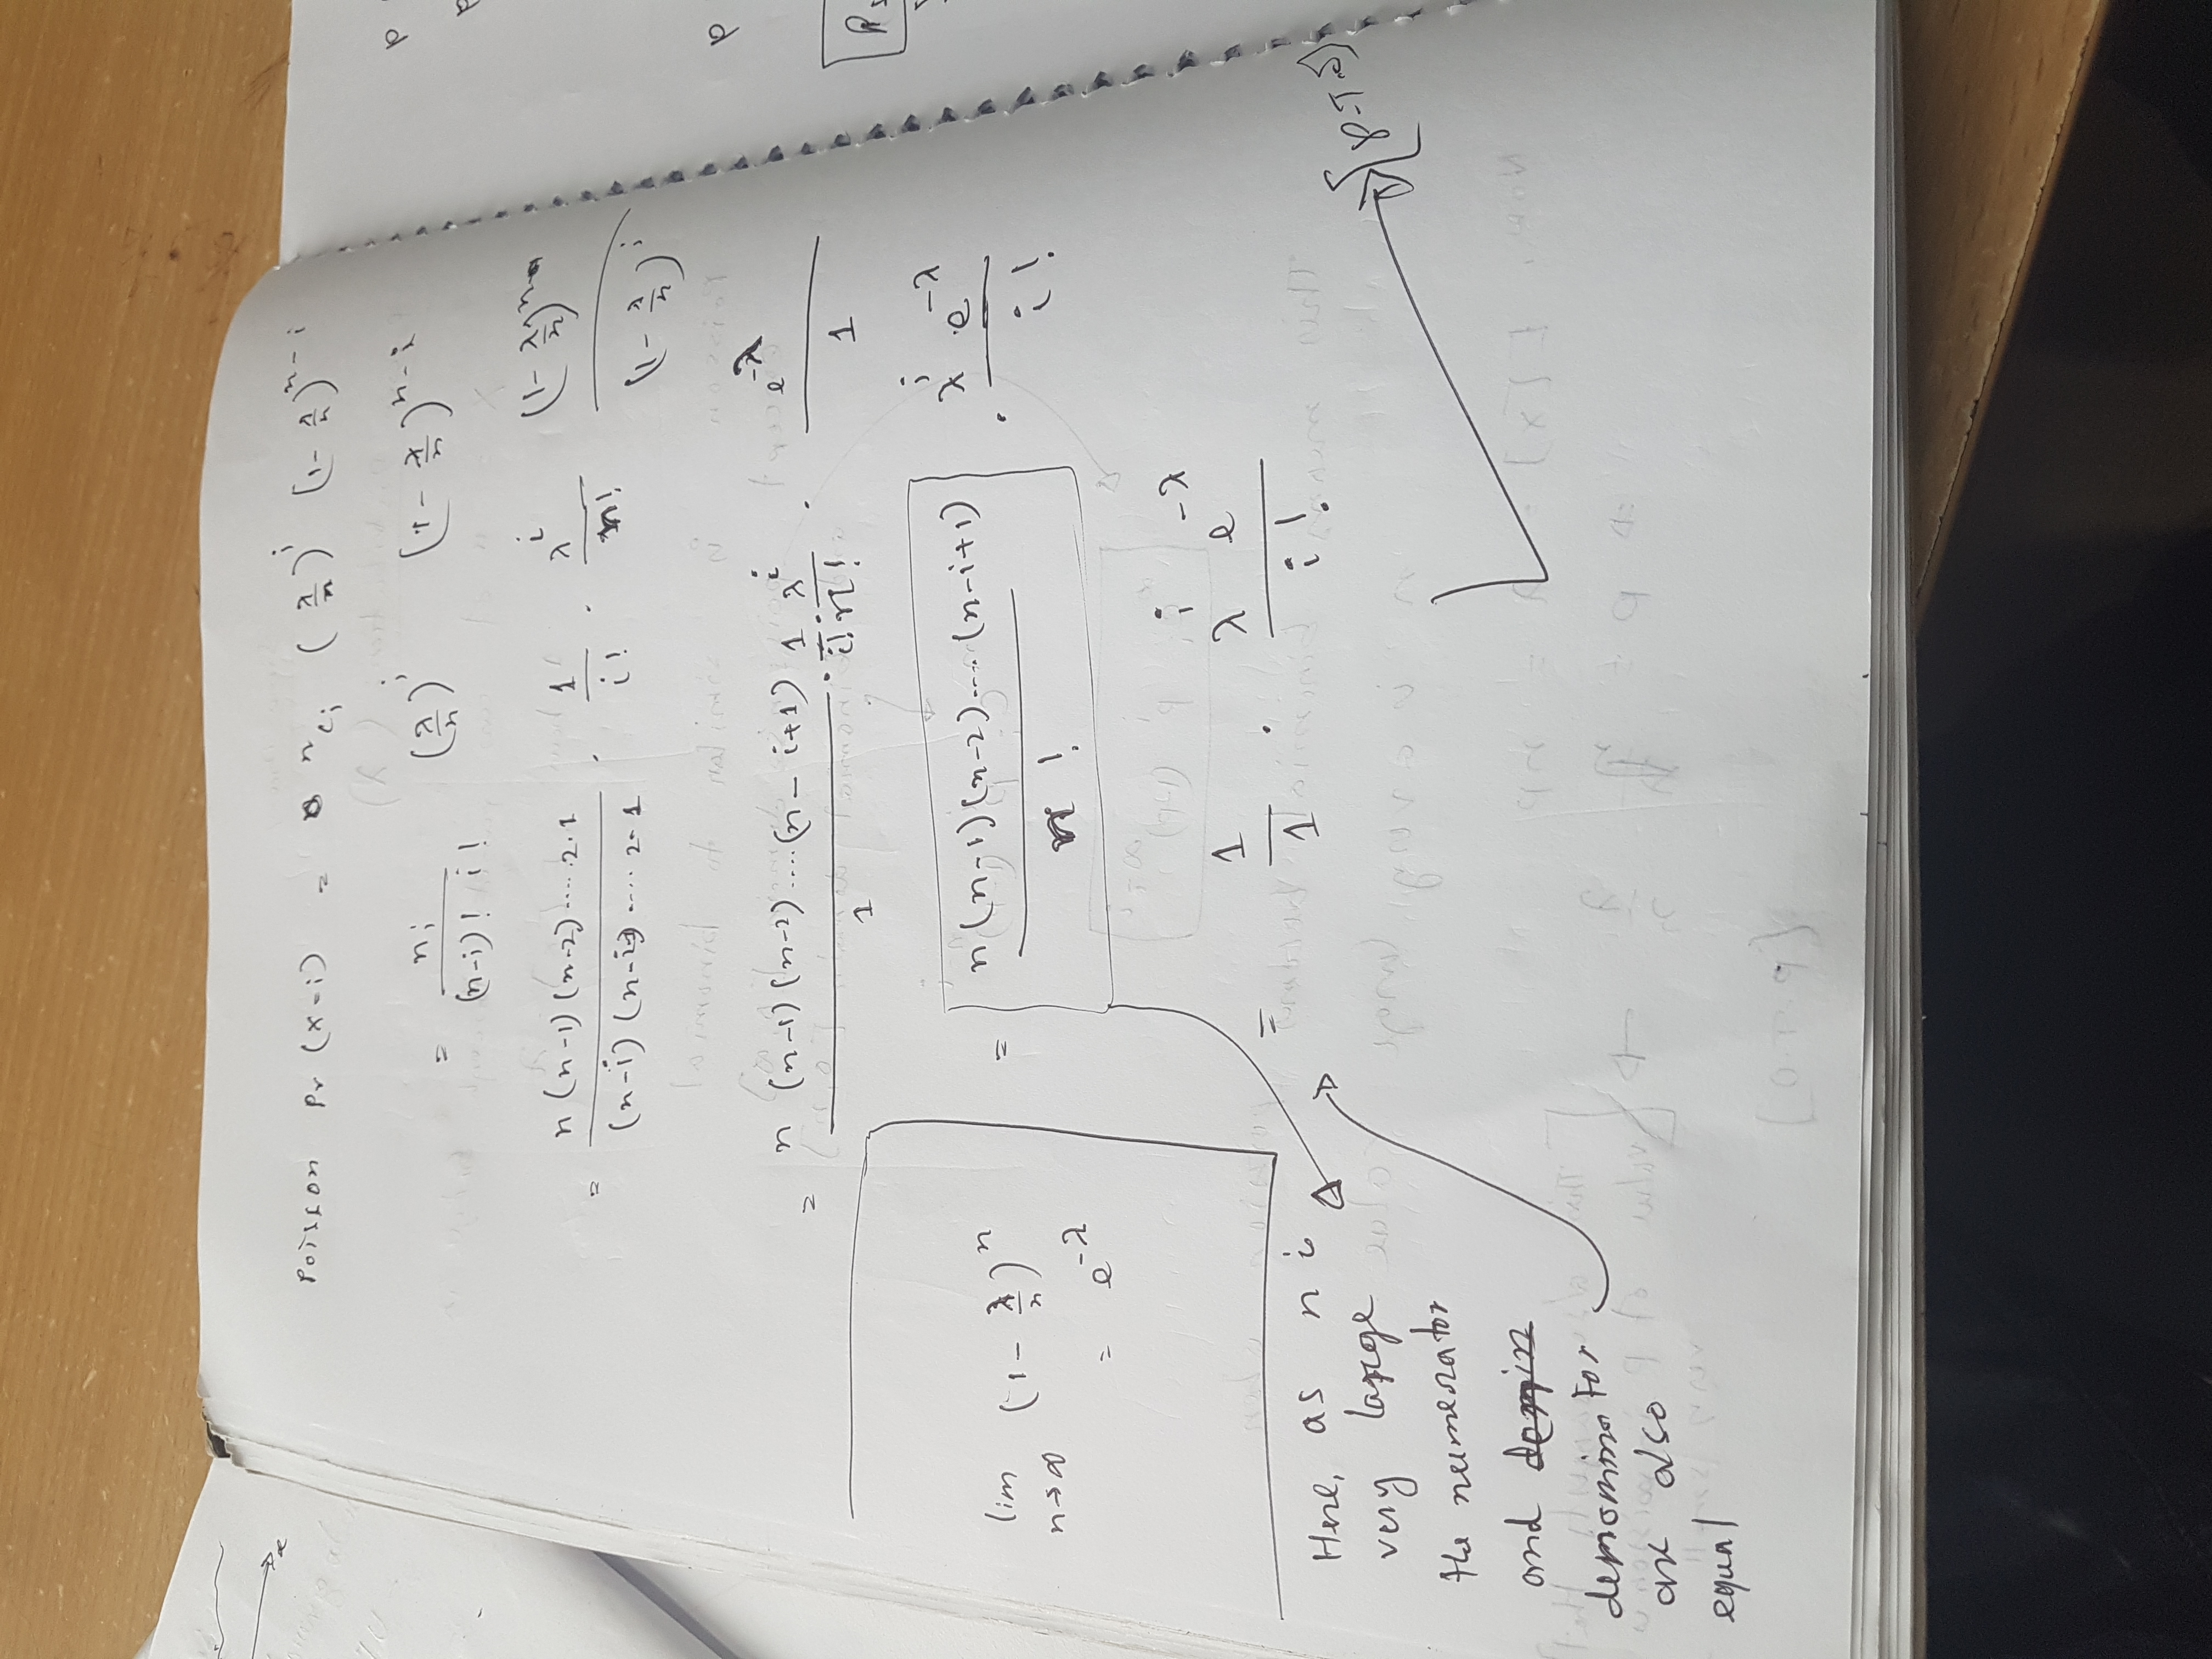 Poisson Pr (x=i) = ⁿCᵢ (λ/n)ⁱ (1 - λ/n)ⁿ⁻ⁱ
= n¡ / (n-i)! i! (λ/n)ⁱ (1 - λ/n)ⁿ⁻ⁱ
= n (n-1) (n-2) ..... 2.1 / (n-i) (n-i-1) .... 2.1 . 1/i! . λⁱ/n! (1 - λ/n)ⁿ / (1 - λ/n)ⁱ
= n (n-1) (n-2) .... (n-i+1) / 1 . 1/i! . λⁱ/n! . e^-λ / 1
lim n→∞ (1 - λ/n)ⁿ
= e^-λ
= n (n-1) (n-2) .... (n-i+1) / n! . λⁱ e^-λ / i!
= 1/1 . λⁱ e^-λ / i!
Here, as n is
very large
the numerator
and
denominator
are also
equal
[P.T.O]